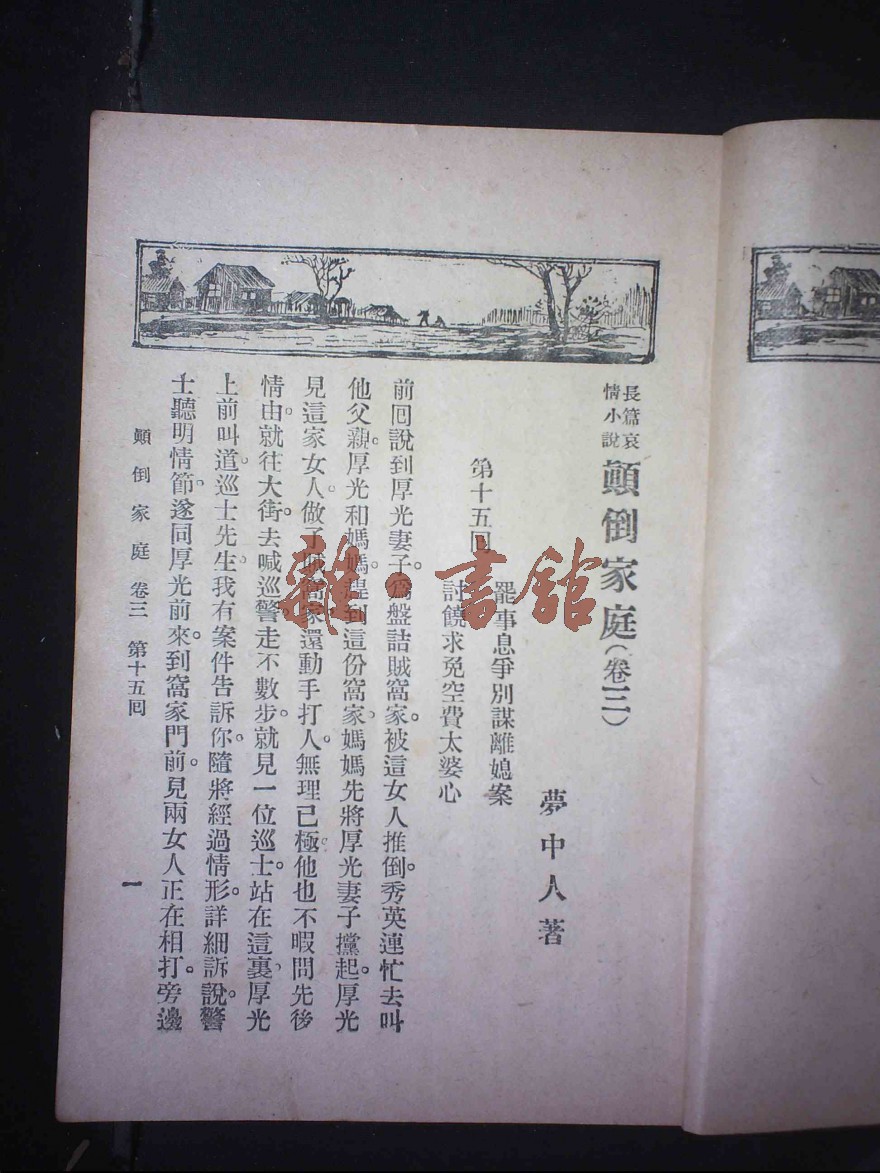 長篇哀
情小說
顛倒家庭(卷三)
夢中人著
第十五回
罷事息爭別謀離媳案
討饒求免空費太婆心
前回說到厚光妻子。爲盤詰賊窩家。被這女人推倒。秀英連忙去叫
他父親。厚光和媽媽。趕到這份窩家。媽媽先將厚光妻子攩起。厚光
見這家女人。做了賊窩家。還動手打人。無理已極。他也不暇問先後
情由。就往大街。去喊巡警。走不數步。就見一位巡士。站在這裏。厚光
上前叫道。巡士先生。我有案件告訴你。隨將經過情形。詳細訴說。警
士聽明情節。遂同厚光前來。到窩家門前。見兩女人正在相打。旁邊
顛倒家庭 卷三 第十五回
一
雜·書館